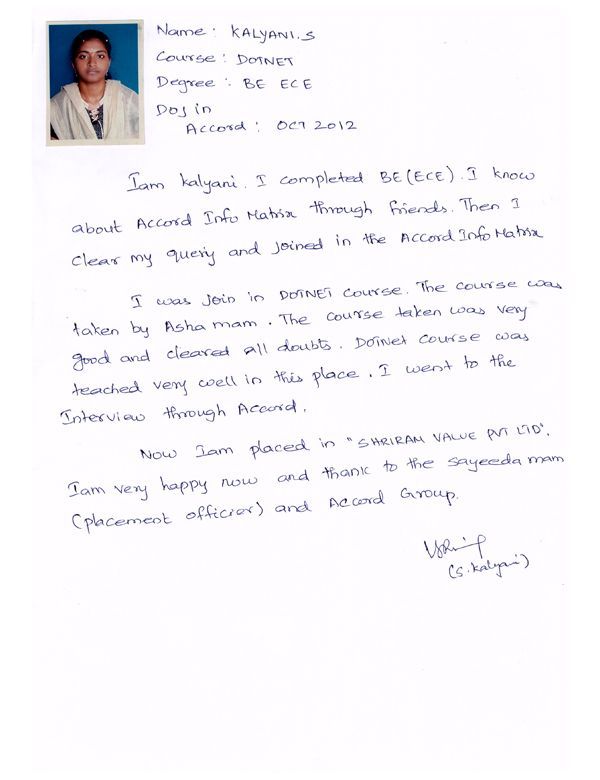 Name : KALYANI.S
Course : DOTNET
Degree : BE ECE
DOJ in
Accord : OCT 2012
Iam kalyani. I completed BE(ECE). I know
about Accord Info Matrix through friends. Then I
clear my query and joined in the Accord Info Matrix
I was Join in DOTNET course. The course was
taken by Asha mam. The course taken was very
good and cleared all doubts. DOTNet course was
teached very well in this place. I went to the
Interview through Accord.
Now Iam placed in "SHRIRAM VALUE PVT LTD".
Iam very happy now and thank to the sayeeda mam
(placement officier) and Accord Group.
(S.Kalyani)